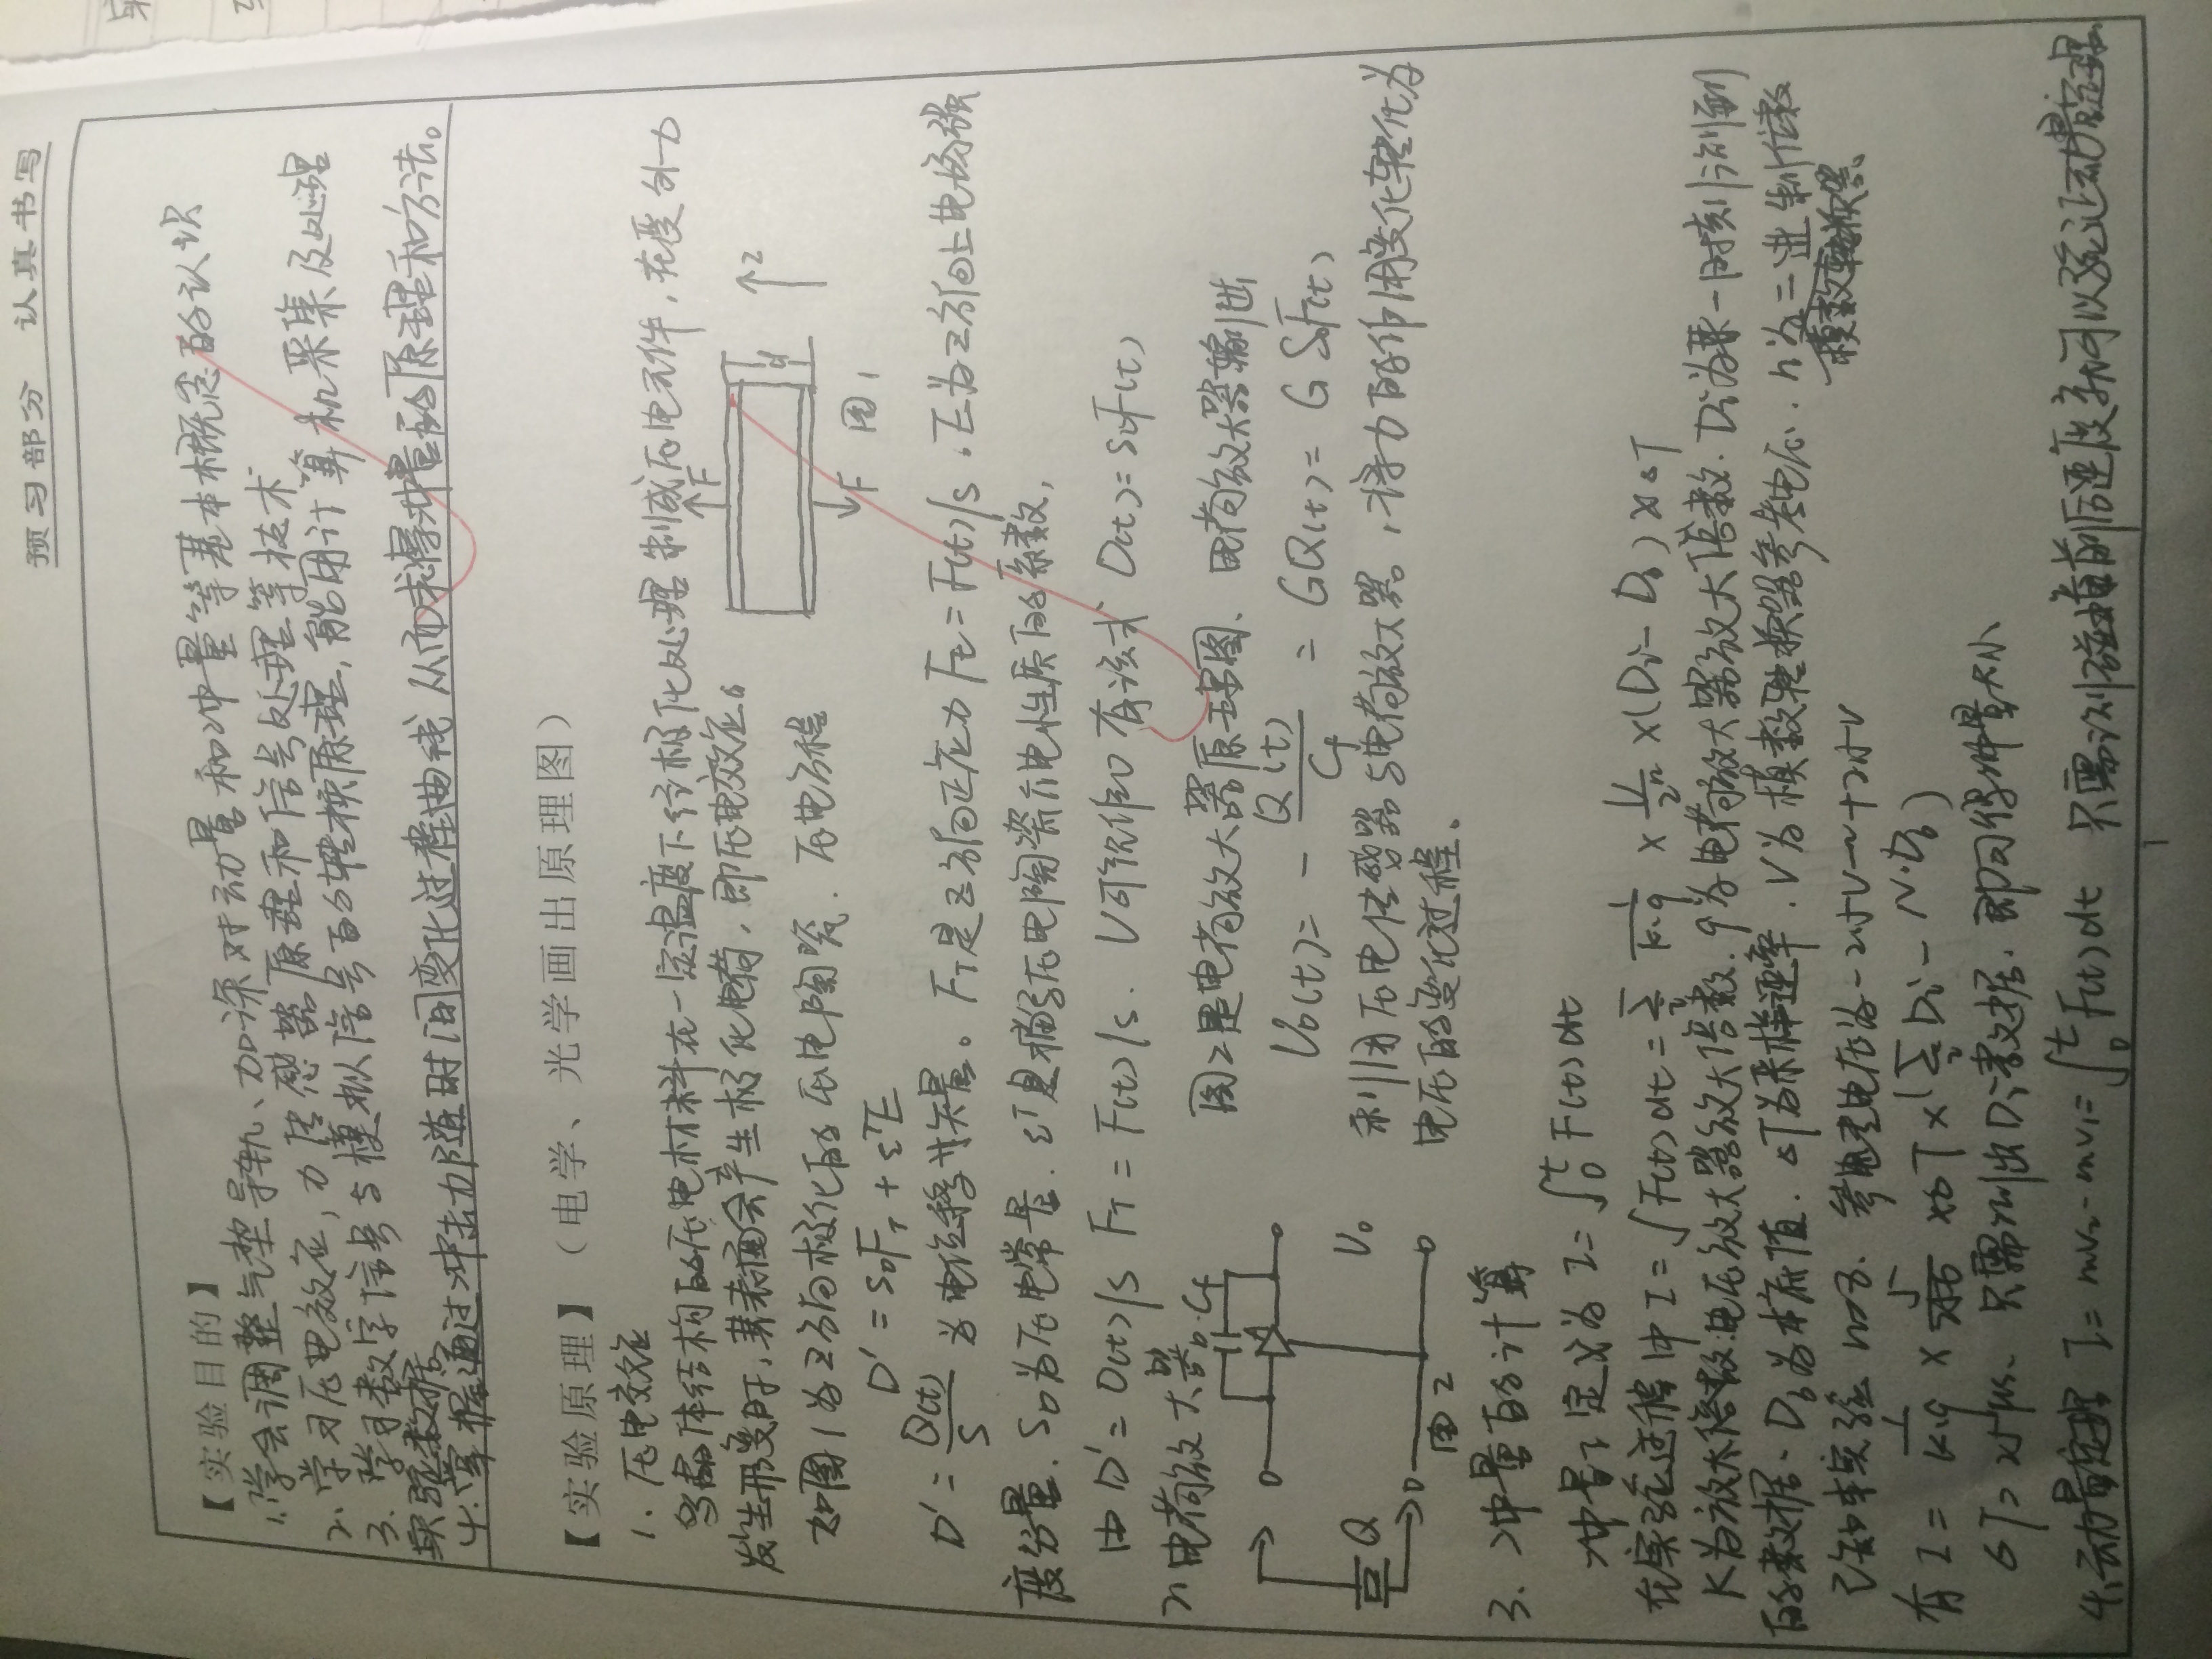 预习部分 认真书写
【实验目的】
1.学会调整气垫导轨、加深对动量和冲量等基本概念的认识
2、学习压电效应，力传感器原理和信号处理等技术
3.学习数字信号与模拟信号的转换原理，能用计算机采集及处理
实验数据
4.掌握通过冲击力随时间变化过程曲线 从而求得冲量的原理和方法。
【实验原理】（电学、光学画出原理图）
1.压电效应
晶体结构的压电材料在一定温度下经极化处理制成压电元件，在受外力
发生形变时，其表面会产生极化电荷，即压电效应。
如图1为Z方向极化的压电陶瓷.压电方程
F
d
Z
F 图1
D' = S₀F_T + ε^TE
D' = Q(t)/S 为电位移矢量。F_T是Z方向正应力 F_T = F(t)/S .E为Z方向上电场强
度分量.S₀为压电常量.ε^T是描写压电陶瓷介电性质的系数，
由 D' = Q(t)/S F_T = F(t)/S. 可视作0 有该式 Q(t) = S₀F(t)
2、电荷放大器
Cf
Q
V₀
图2
图2是电荷放大器原理图、电荷放大器输出
V₀(t) = - Q(t)/Cf = GQ(t) = G S₀F(t)
利用压电传感器与电荷放大器，将力的作用变化转化为
电压的变化过程.
3、冲量的计算
冲量I定义为 I=∫₀^t F(t)dt
在实验过程中 I=∫F(t)dt = Σ_i 1/(K·q) × V/2ⁿ × (D_i - D_0) × ΔT
K为放大倍数:电压放大器放大倍数.q为电荷放大器放大倍数.D_i为某一时刻测到
的数据、D_0为本底值.ΔT为采样速率.V为模数转换器参考电压.n为二进制位数
模数转换器
已知本实验 n=8.参考电压为-2.5V~+2.5V
有 I = 1/(K·q) × 5/256 × ΔT × (Σ_i D_i - N·D_0)
ΔT=25μs、只需测出D_i数据.即可得冲量大小
4、动量定理 I=mv₂-mv₁=∫₀^t F(t)dt 只需测碰撞前后速度就可以验证动量定理.
1